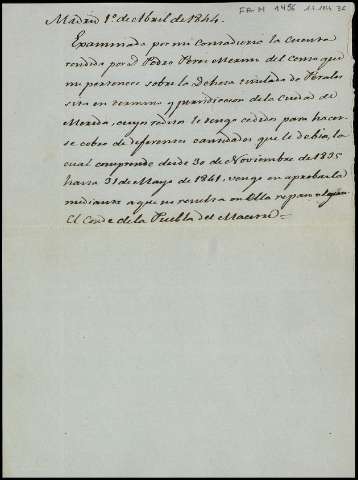 FA. M 1456
Madrid 1.º de Abril de 1844.
Examinada por mi Contaduria la Cuenta
rendida por D. Pedro Perez Merino del Censo que
me pertenece sobre la Dehesa titulada de Perales
sita en termino y jurisdiccion de la Ciudad de
Merida, cuyos reditos le tengo cedidos para hacer-
se cobro de diferentes cantidades que le debia, la
cual comprende desde 30 de Noviembre de 1835
hasta 31 de Mayo de 1841, vengo en aprobarla
mediante a que no resulta en ella reparo alguno
El Conde de la Puebla del Maestre =